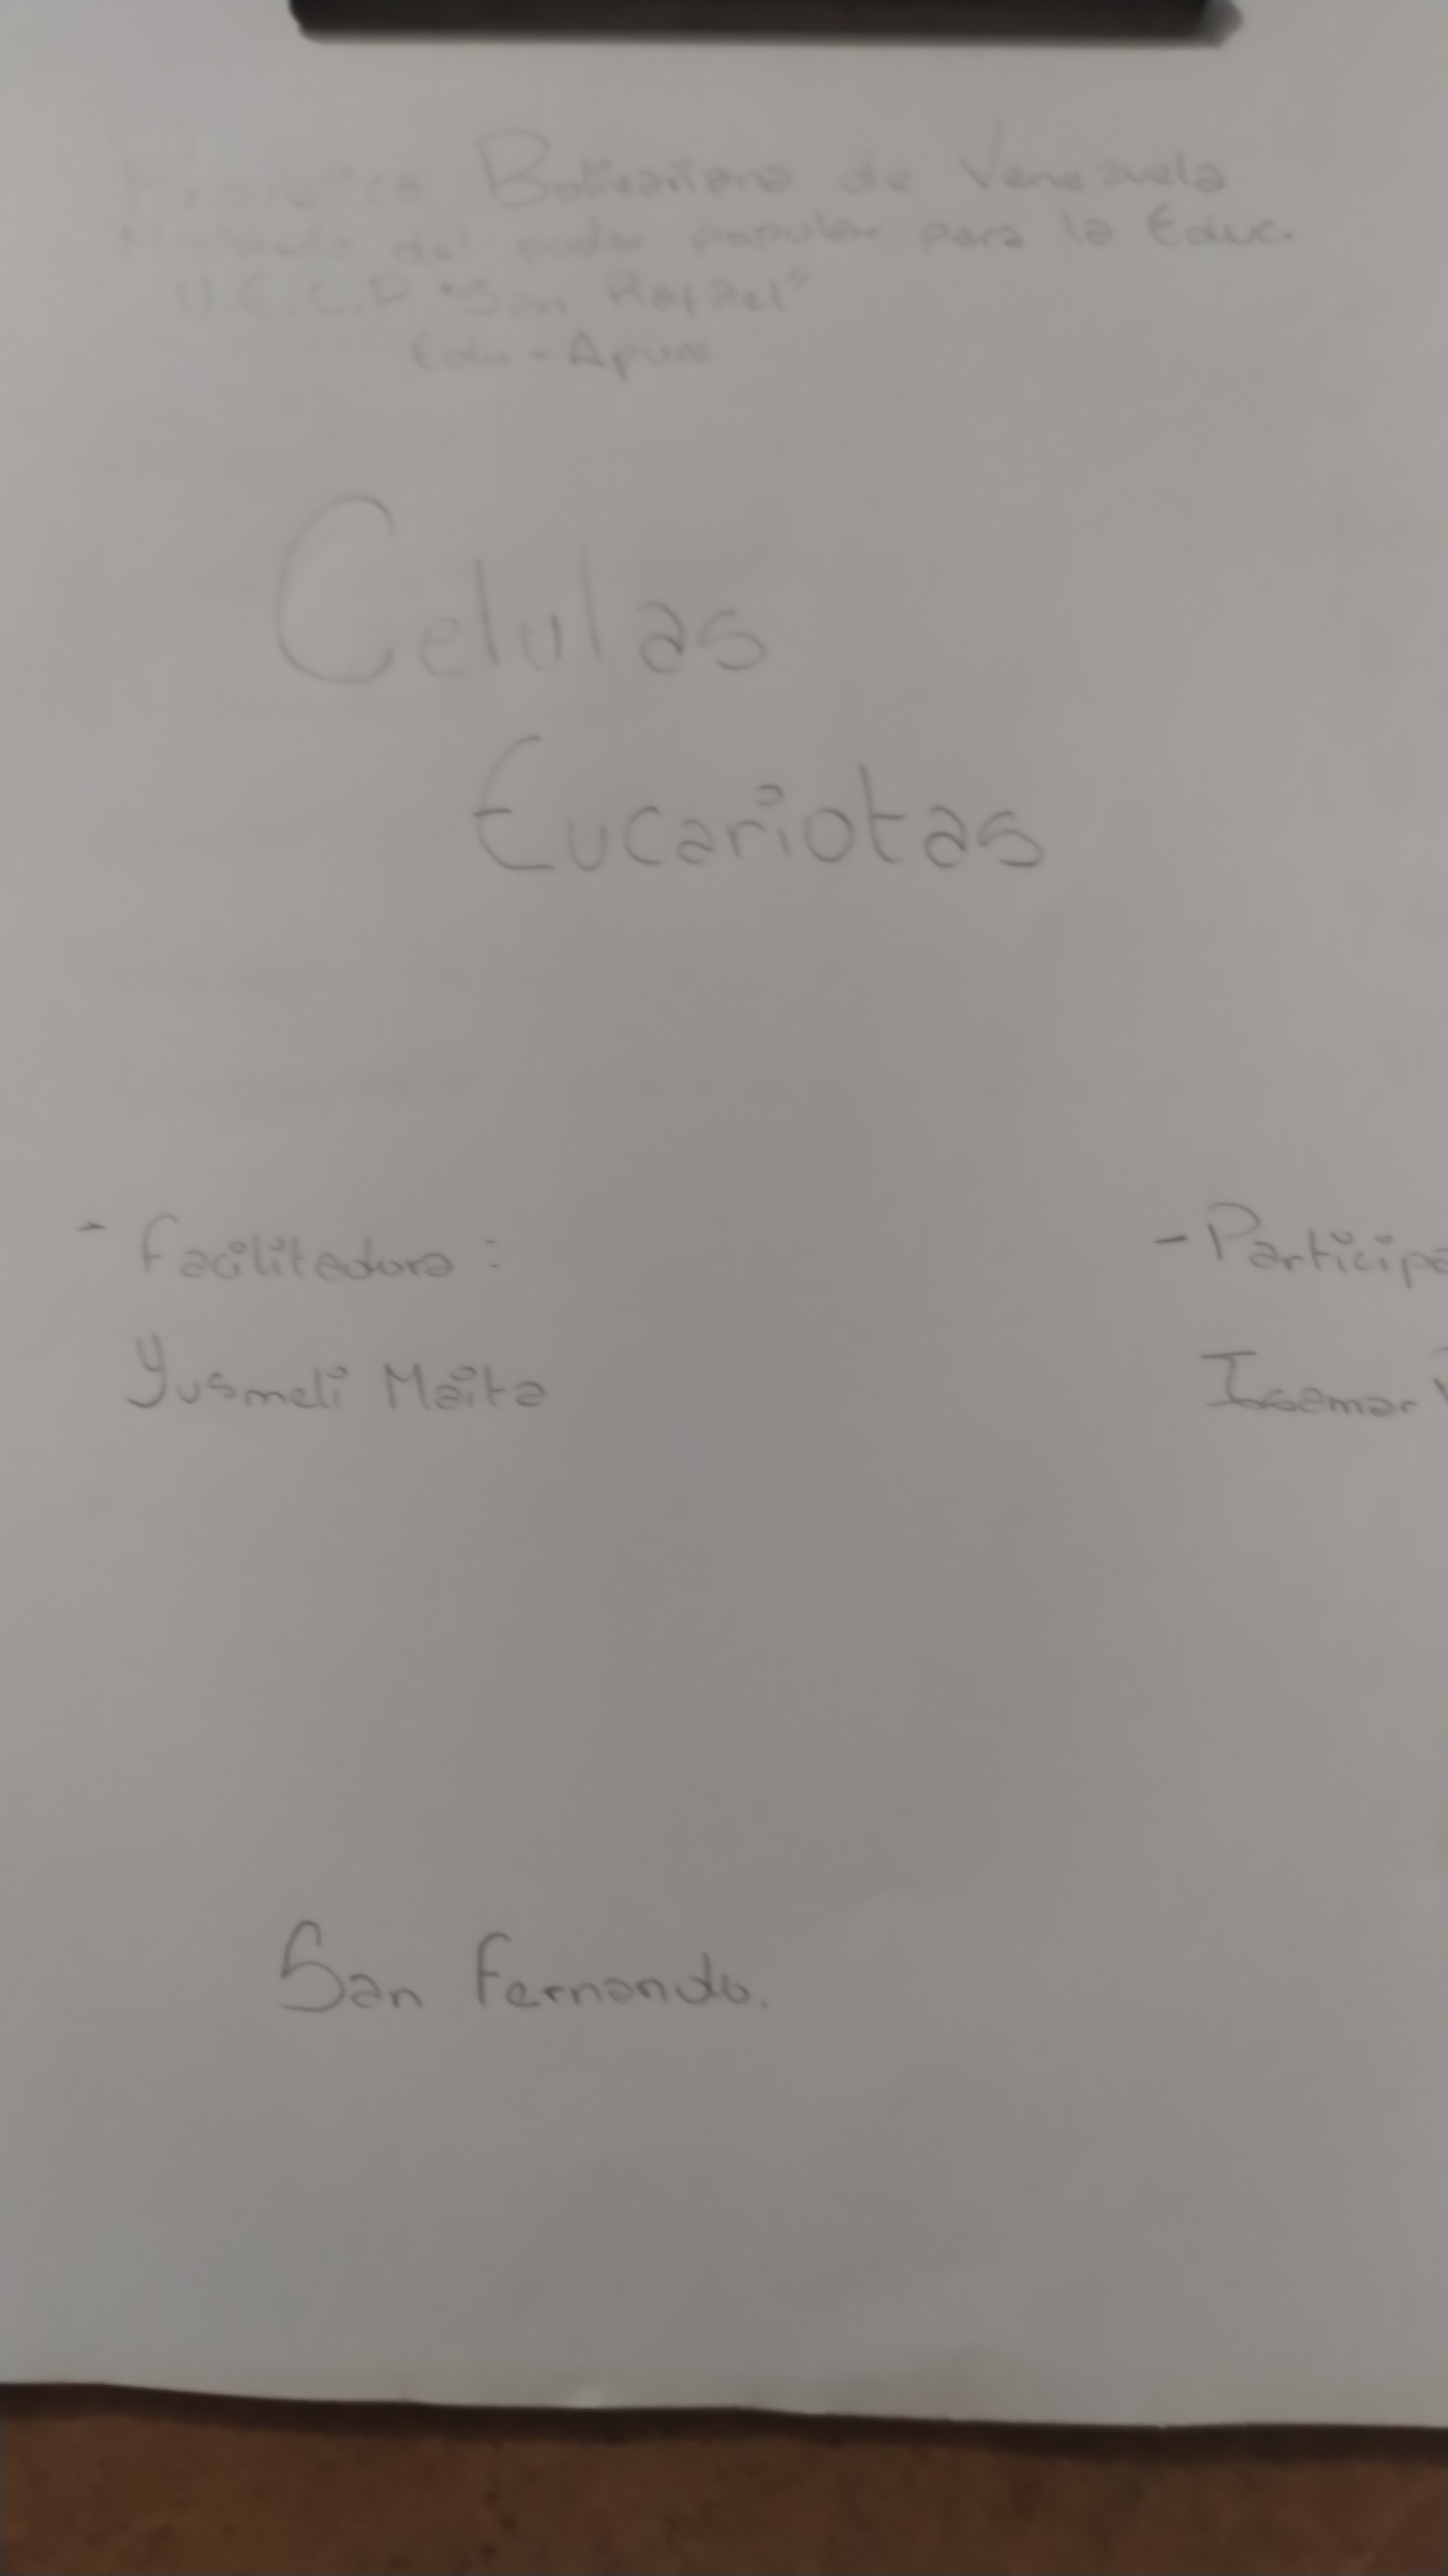 Republica Bolivariana de Venezuela
Ministerio del poder popular para la Educ.
U.E.C.D "San Rafael"
Edo - Apure
Celulas
Eucariotas
- Facilitadora:
Yusmeli Maita
- Participa
Isamar
San Fernando.